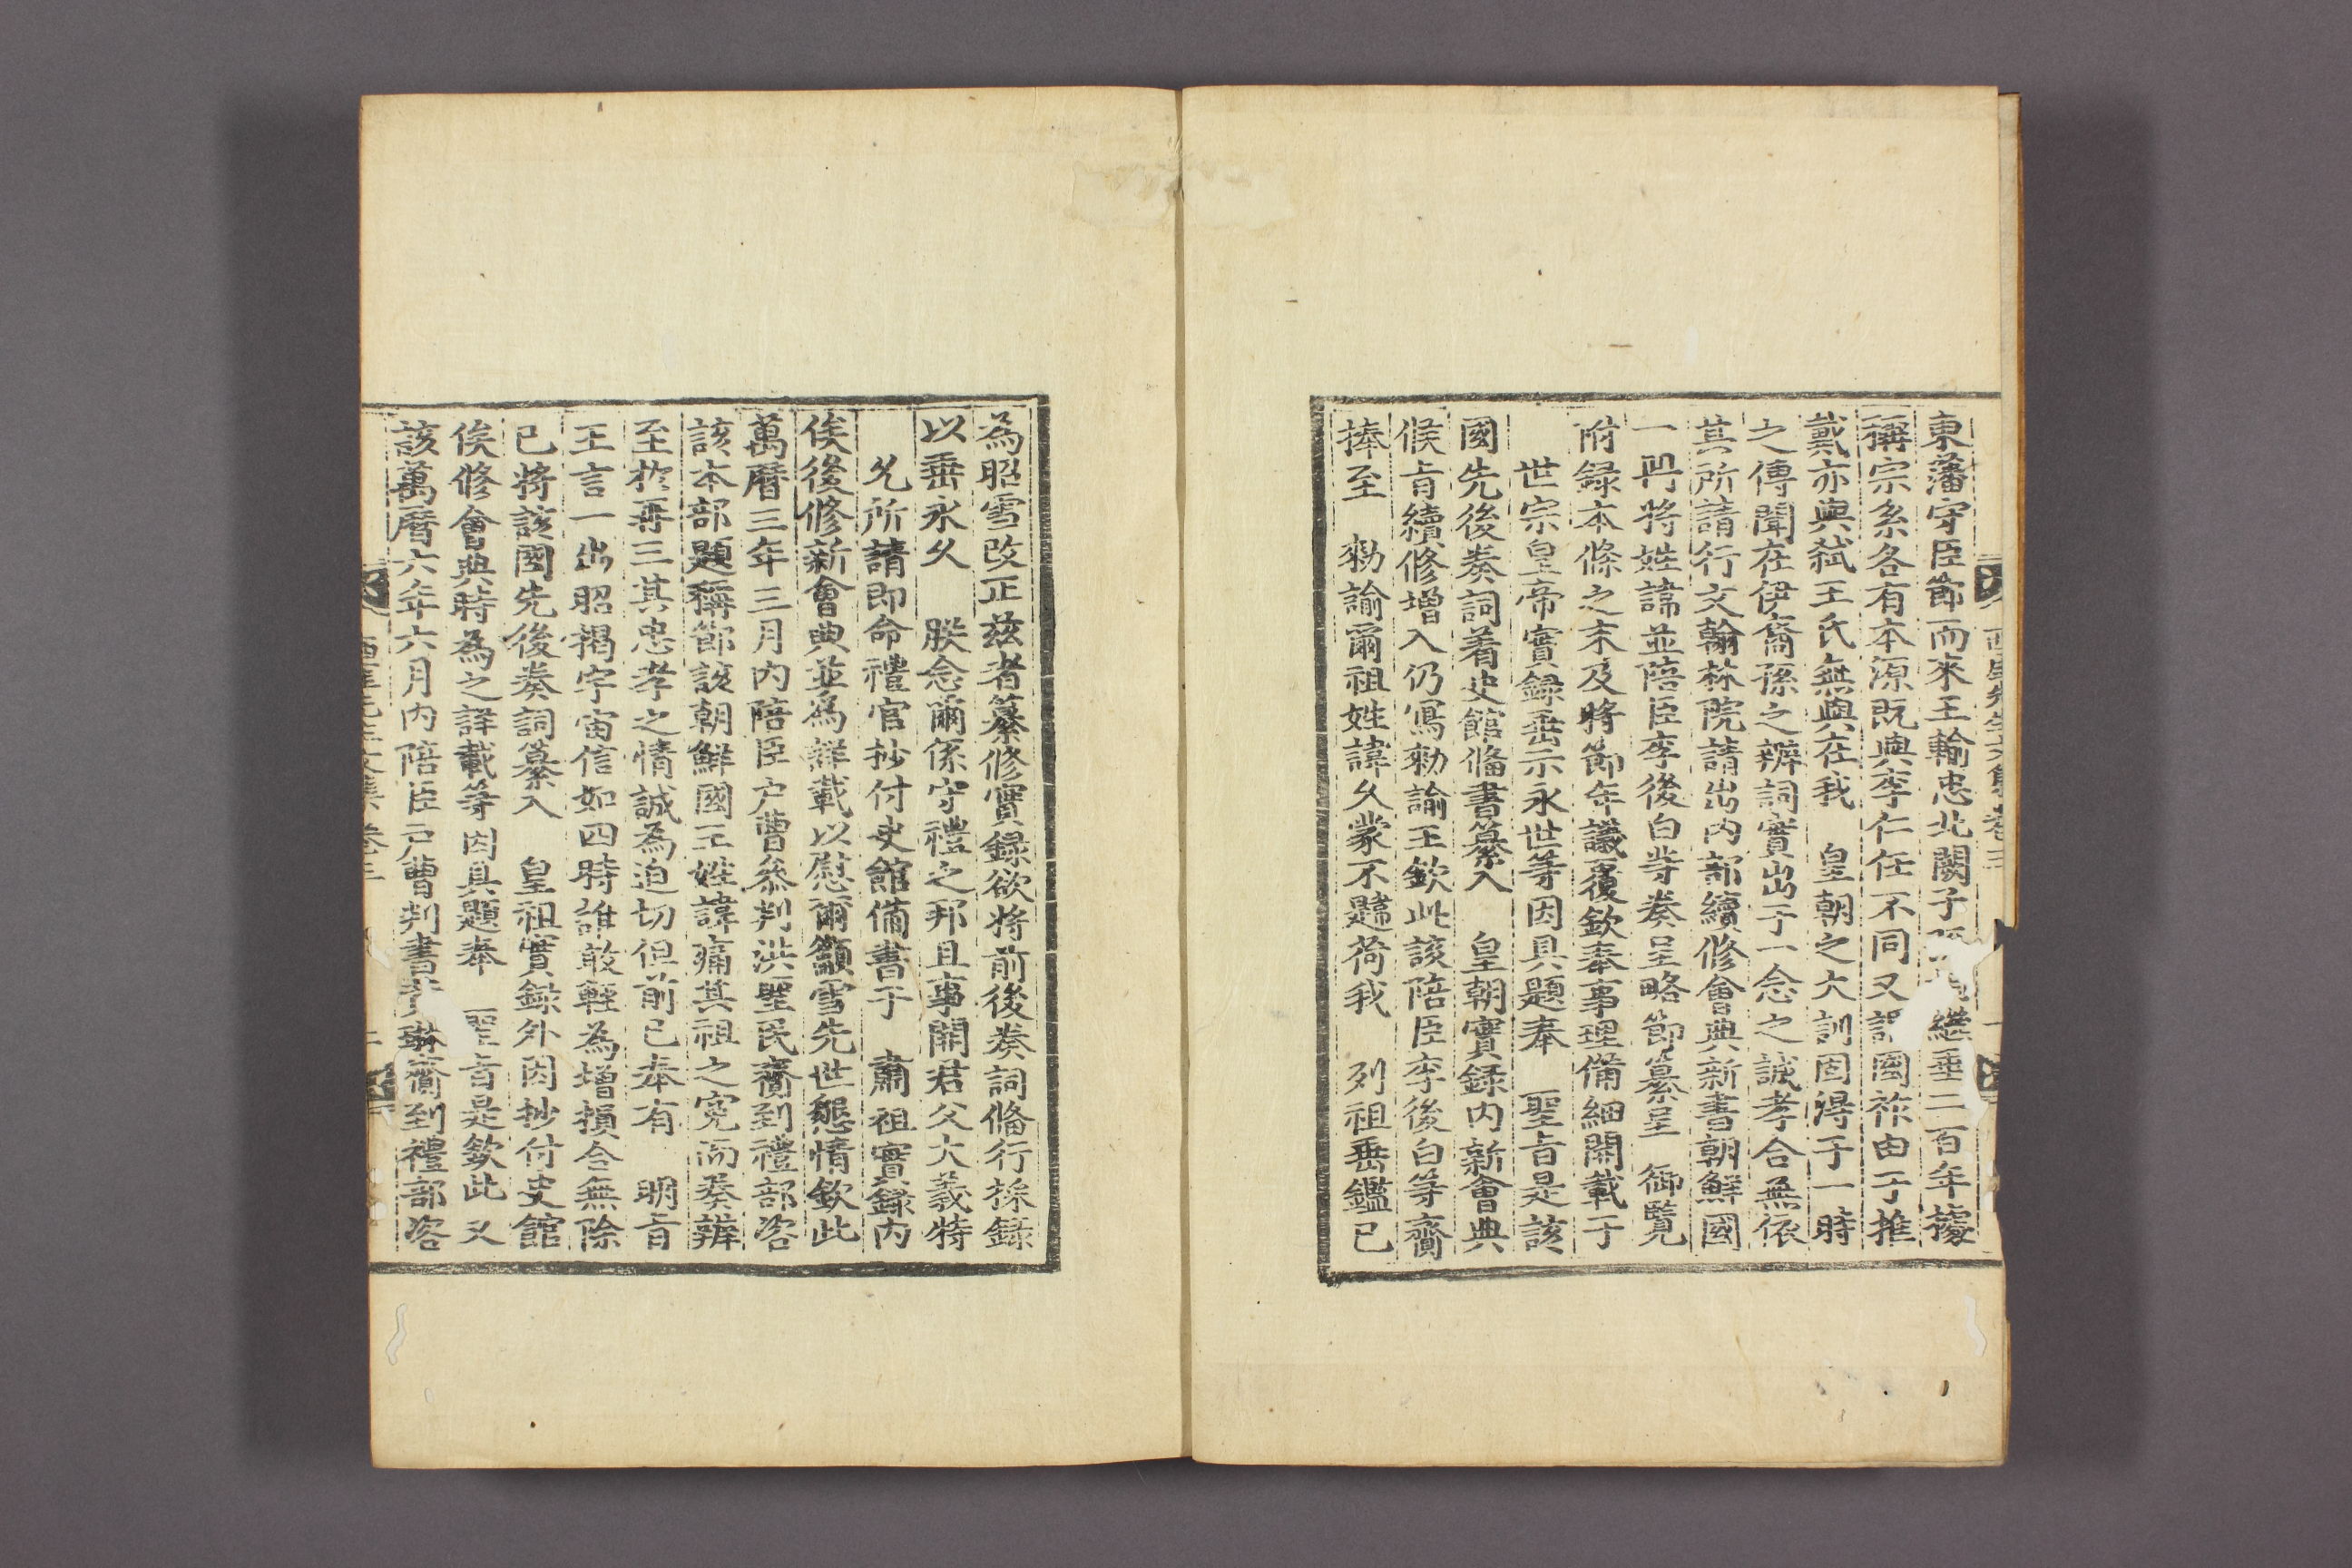 東藩守臣節而來王輸忠北闕子 繼垂二百年據
稱宗系各有本源旣與李仁任不同又 國祚由于推
戴亦與弑王氏無與在我　皇朝之大訓固得于一時
之傳聞在伊裔孫之辨詞實出于一念之誠孝合無依
其所請行文翰林院請出內部續修會典新書朝鮮國
一冊將姓諱並陪臣李後白等奏呈略節纂呈　御覽
附錄本條之末及將節年議覆欽奉事理備細開載于
世宗皇帝實錄垂示永世等因具題奉　聖旨是該
國先後奏詞着史館備書纂入　皇朝實錄內新會典
候旨續修增入仍寫勑諭王欽此該陪臣李後白等齎
捧至　勑諭爾祖姓諱久蒙不韙荷我　列祖垂鑑已
為昭雪改正茲者纂修實錄欲將前後奏詞備行採錄
以垂永久　朕念爾係守禮之邦且事關君父大義特
允所請即命禮官抄付史館備書于　肅祖實錄內
俟後修新會典並為詳載以慰爾籲雪先世懇情欽此
萬曆三年三月內陪臣戶曹參判洪聖民齎到禮部咨
該本部題稱節該朝鮮國王姓諱痛其祖之冤而奏辨
至於再三其忠孝之情誠為迫切但前已奉有　明旨
王言一出昭揭宇宙信如四時誰敢輕為增損合無除
已將該國先後奏詞纂入　皇祖實錄外因抄付史館
俟修會典時為之詳載等因具題奉　聖旨是欽此又
該萬曆六年六月內陪臣戶曹判書 琳齎到禮部咨